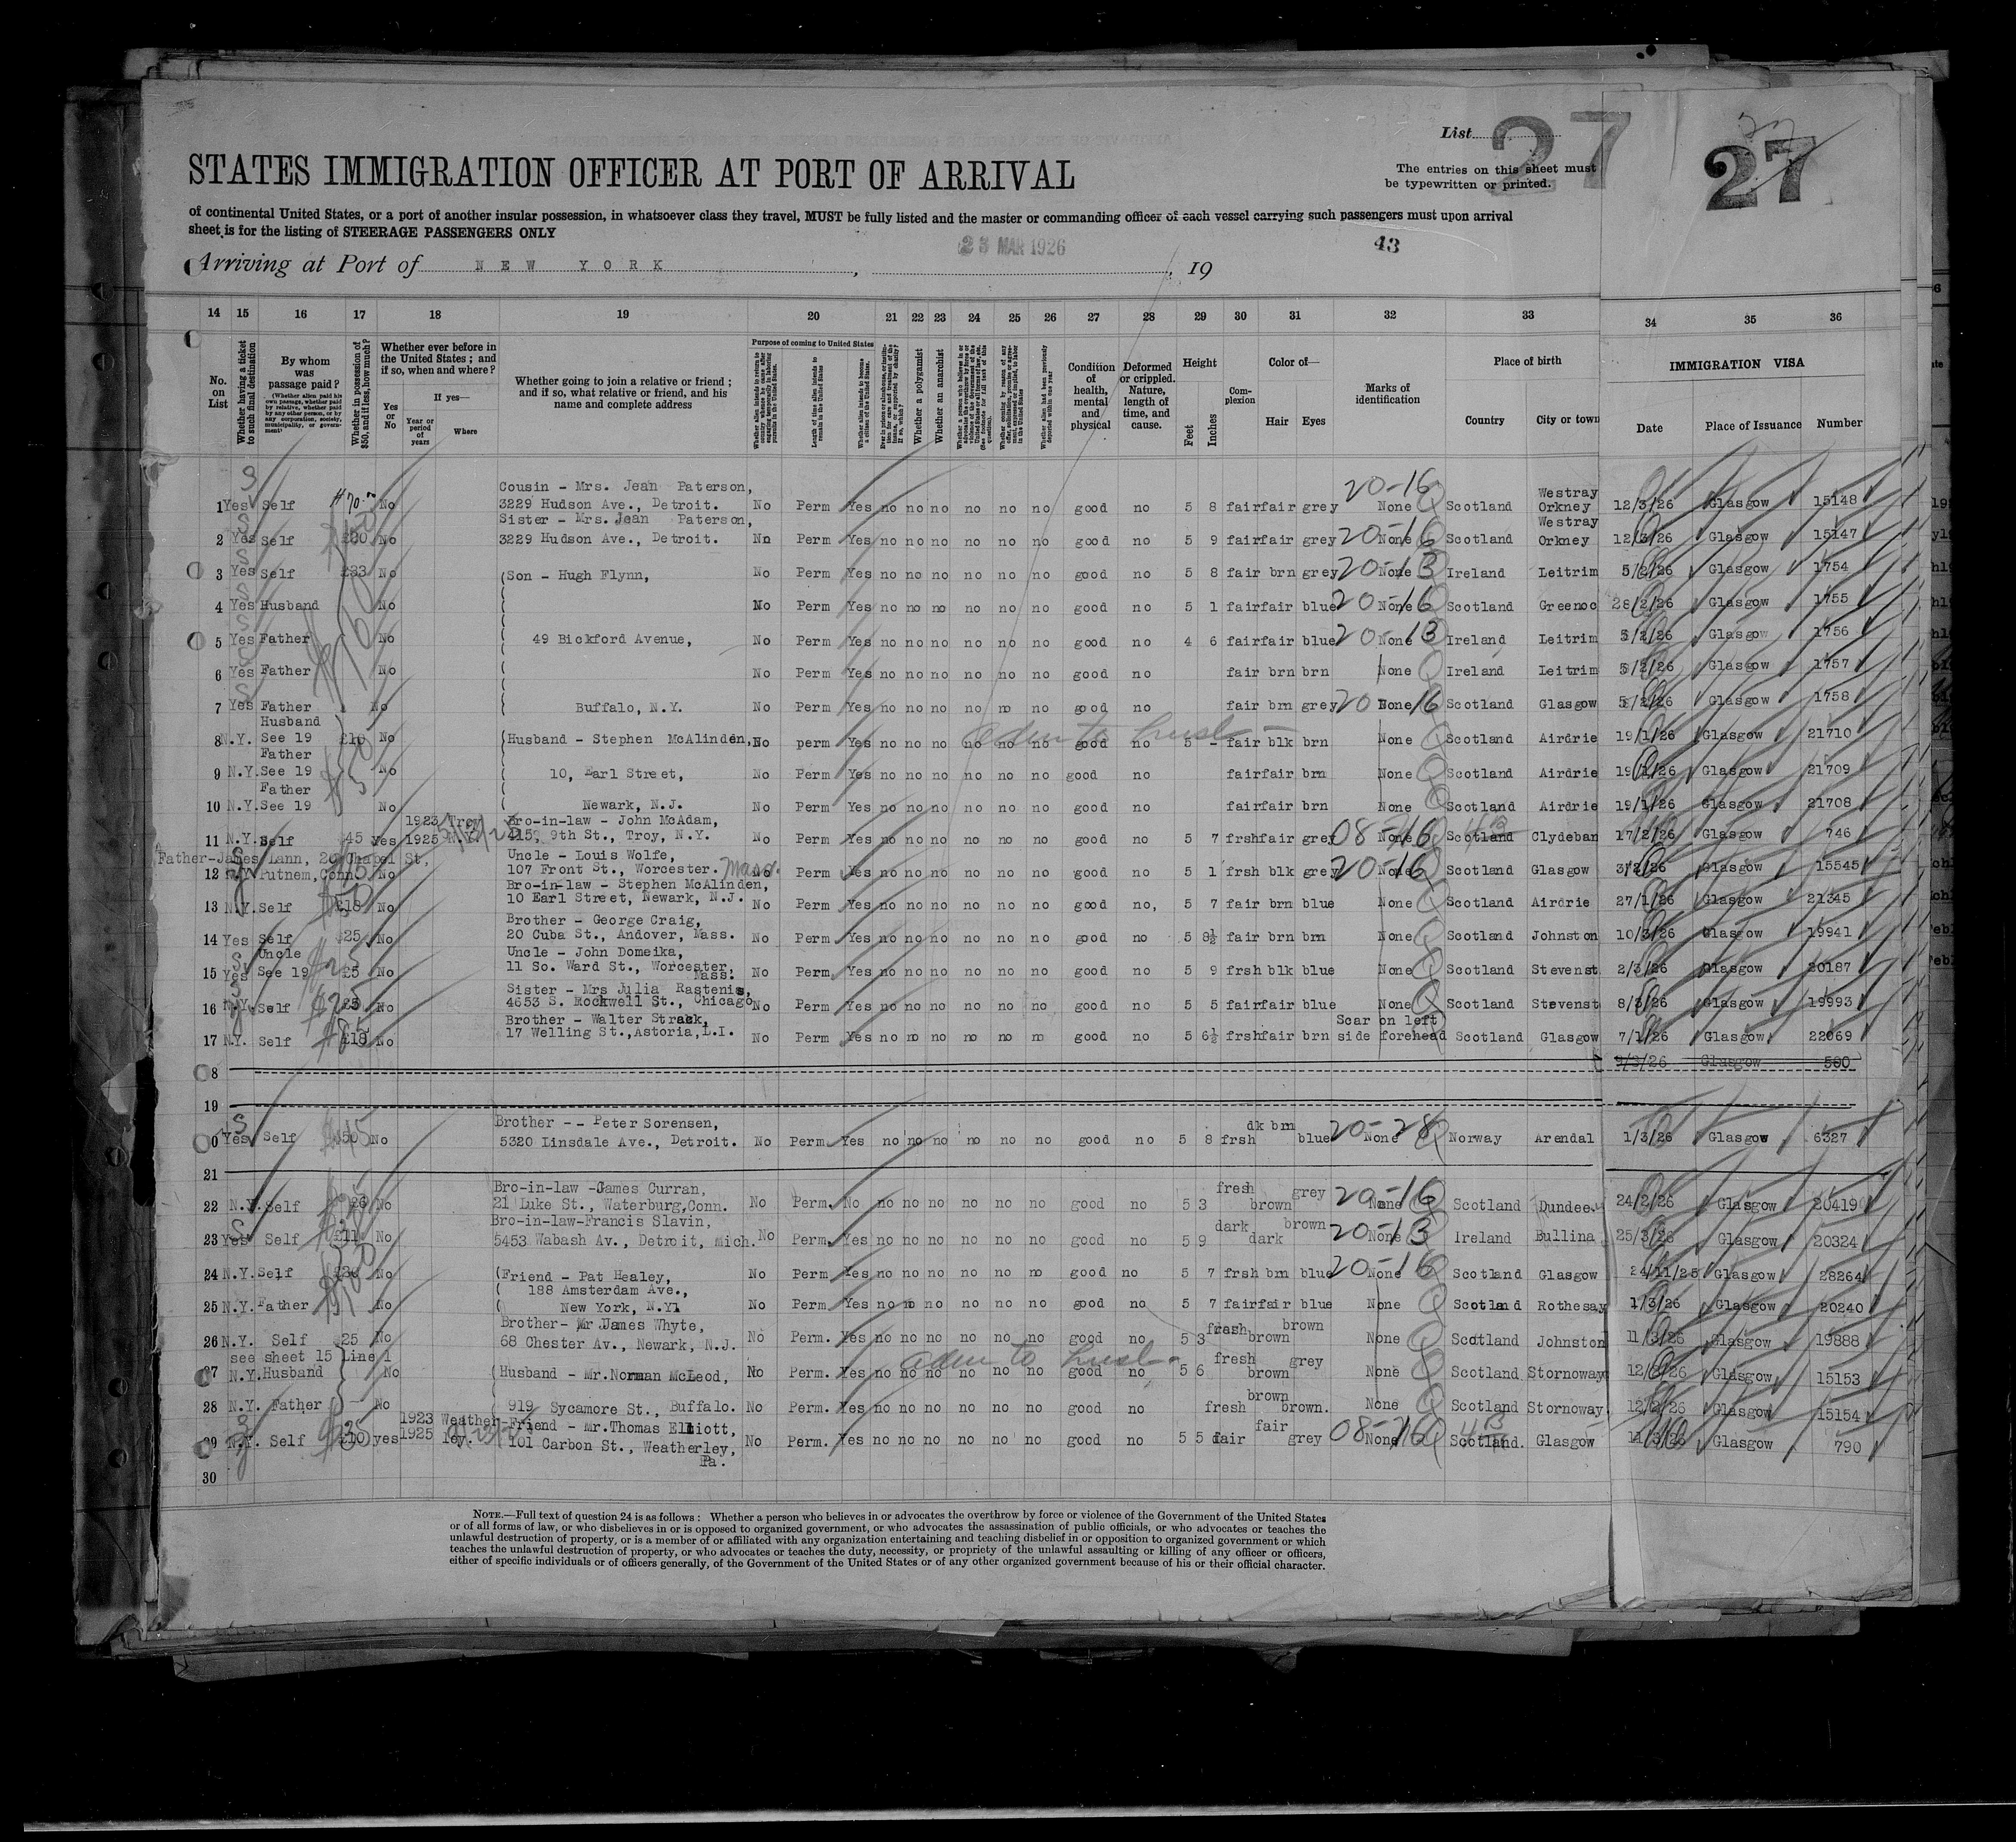 List 27
27
27
STATES IMMIGRATION OFFICER AT PORT OF ARRIVAL
The entries on this sheet must
be typewritten or printed.
of continental United States, or a port of another insular possession, in whatsoever class they travel, MUST be fully listed and the master or commanding officer of each vessel carrying such passengers must upon arrival
sheet is for the listing of STEERAGE PASSENGERS ONLY
23 MAR 1926
43
Arriving at Port of NEW YORK , , 19
14 15 16 17 18 19 20 21 22 23 24 25 26 27 28 29 30 31 32 33 34 35 36
No. on List
Whether having a ticket to such final destination
By whom was passage paid?
Whether in possession of $50, and if less, how much?
Whether ever before in the United States; and if so, when and where?
Yes or No
If yes—
Year or period of years
Where
Whether going to join a relative or friend; and if so, what relative or friend, and his name and complete address
Purpose of coming to United States
Length of time alien intends to remain in the United States
Whether alien intends to become a citizen of the United States.
Whether a polygamist
Whether an anarchist
Condition of health, mental and physical
Deformed or crippled. Nature, length of time, and cause.
Height
Feet
Inches
Complexion
Color of—
Hair Eyes
Marks of identification
Place of birth
Country City or town
IMMIGRATION VISA
Date Place of Issuance Number
1 Yes Self $70.00 No Cousin - Mrs. Jean Paterson, 3229 Hudson Ave., Detroit. No Perm Yes no no no no no no good no 5 8 fair fair grey None 20-16 Scotland Westray Orkney 12/3/26 Glasgow 15148
2 Yes Self No Sister - Mrs. Jean Paterson, 3229 Hudson Ave., Detroit. No Perm Yes no no no no no no good no 5 9 fair fair grey None 20-16 Scotland Westray Orkney 12/3/26 Glasgow 15147
3 Yes Self £33 No (Son - Hugh Flynn, No Perm Yes no no no no no no good no 5 8 fair brn grey None 20-13 Ireland Leitrim 5/2/26 Glasgow 1754
4 Yes Husband No No Perm Yes no no no no no no good no 5 1 fair fair blue None 20-16 Scotland Greenoc 28/2/26 Glasgow 1755
5 Yes Father No 49 Bickford Avenue, No Perm Yes no no no no no no good no 4 6 fair fair blue None 20-13 Ireland Leitrim 5/2/26 Glasgow 1756
6 Yes Father No No Perm Yes no no no no no no good no fair brn brn None Ireland Leitrim 5/2/26 Glasgow 1757
7 Yes Father No Buffalo, N.Y. No Perm Yes no no no no no no good no fair brn grey None 20 16 Scotland Glasgow 5/2/26 Glasgow 1758
adm to husb -
8 N.Y. Husband See 19 No (Husband - Stephen McAlinden, No perm Yes no no no no no no good no 5 - fair blk brn None Scotland Airdrie 19/1/26 Glasgow 21710
9 N.Y. Father See 19 No 10, Earl Street, No Perm Yes no no no no no no good no fair fair brn None Scotland Airdrie 19/1/26 Glasgow 21709
10 N.Y. Father See 19 No Newark, N.J. No Perm Yes no no no no no no good no fair fair brn None Scotland Airdrie 19/1/26 Glasgow 21708
11 N.Y. Self 45 Yes 1923 1925 Troy N.Y. Bro-in-law - John McAdam, 415, 9th St., Troy, N.Y. No Perm Yes no no no no no no good no 5 7 frsh fair grey None Scotland Clydeban 17/2/26 Glasgow 746
Father-James Lann, 20 Chapel St,
12 Putnem, Conn. No Uncle - Louis Wolfe, 107 Front St., Worcester. Mass. No Perm Yes no no no no no no good no 5 1 frsh blk grey None 20-16 Scotland Glasgow 3/2/26 Glasgow 15545
13 N.Y. Self £18 No Bro-in-law - Stephen McAlinden, 10 Earl Street, Newark, N.J. No Perm Yes no no no no no no good no, 5 7 fair brn blue None Scotland Airdrie 27/1/26 Glasgow 21345
14 Yes Self £25 No Brother - George Craig, 20 Cuba St., Andover, Mass. No Perm Yes no no no no no no good no 5 8½ fair brn brn None Scotland Johnston 10/3/26 Glasgow 19941
15 Yes Uncle See 19 £5 No Uncle - John Domeika, 11 So. Ward St., Worcester, Mass. No Perm Yes no no no no no no good no 5 9 frsh blk blue None Scotland Stevenst 2/3/26 Glasgow 20187
16 N.Y. Self No Sister - Mrs Julia Rastenis, 4653 S. Rockwell St., Chicago No Perm Yes no no no no no no good no 5 5 fair fair blue None Scotland Stevenst 8/3/26 Glasgow 19993
17 N.Y. Self £18 No Brother - Walter Strack, 17 Welling St., Astoria, L.I. No Perm Yes no no no no no no good no 5 6½ frsh fair brn Scar on left side forehead Scotland Glasgow 7/1/26 Glasgow 22069
8 9/3/26 Glasgow 500
19
0 Yes Self No Brother -- Peter Sorensen, 5320 Linsdale Ave., Detroit. No Perm Yes no no no no no no good no 5 8 frsh dk brn blue None 20-28 Norway Arendal 1/3/26 Glasgow 6327
21
22 N.Y. Self 26 No Bro-in-law -James Curran, 21 Luke St., Waterburg, Conn. No Perm. No no no no no no no good no 5 3 fresh brown grey None 20-16 Scotland Dundee 24/2/26 Glasgow 20419
23 Yes Self £11 No Bro-in-law-Francis Slavin, 5453 Wabash Av., Detroit, Mich. No Perm. Yes no no no no no no good no 5 9 dark dark brown None 20-13 Ireland Bullina 25/3/26 Glasgow 20324
24 N.Y. Self No (Friend - Pat Healey, No Perm Yes no no no no no no good no 5 7 frsh brn blue None 20-16 Scotland Glasgow 24/11/25 Glasgow 28264
( 188 Amsterdam Ave.,
25 N.Y. Father No ( New York, N.Y. No Perm. Yes no no no no no no good no 5 7 fair fair blue None Scotland Rothesay 1/3/26 Glasgow 20240
26 N.Y. Self £25 No Brother- Mr James Whyte, 68 Chester Av., Newark, N.J. No Perm. Yes no no no no no no good no 5 3 fresh brown brown None Scotland Johnston 11/3/26 Glasgow 19888
see sheet 15 Line 1
adm to husb -
27 N.Y. Husband No (Husband - Mr. Norman McLeod, No Perm. Yes no no no no no no good no 5 6 fresh brown grey None Scotland Stornoway 12/2/26 Glasgow 15153
28 N.Y. Father No ( 919 Sycamore St., Buffalo. No Perm. Yes no no no no no no good no fresh brown brown. None Scotland Stornoway 12/2/26 Glasgow 15154
29 N.Y. Self £10 yes 1923 1925 Weather-ley. Friend - Mr. Thomas Elliott, 101 Carbon St., Weatherley, Pa. No Perm. Yes no no no no no no good no 5 5 fair fair grey None Scotland. Glasgow 11/3/26 Glasgow 790
30
NOTE.—Full text of question 24 is as follows: Whether a person who believes in or advocates the overthrow by force or violence of the Government of the United States
or of all forms of law, or who disbelieves in or is opposed to organized government, or who advocates the assassination of public officials, or who advocates or teaches the
unlawful destruction of property, or is a member of or affiliated with any organization entertaining and teaching disbelief in or opposition to organized government or which
teaches the unlawful destruction of property, or who advocates or teaches the duty, necessity, or propriety of the unlawful assaulting or killing of any officer or officers,
either of specific individuals or of officers generally, of the Government of the United States or of any other organized government because of his or their official character.